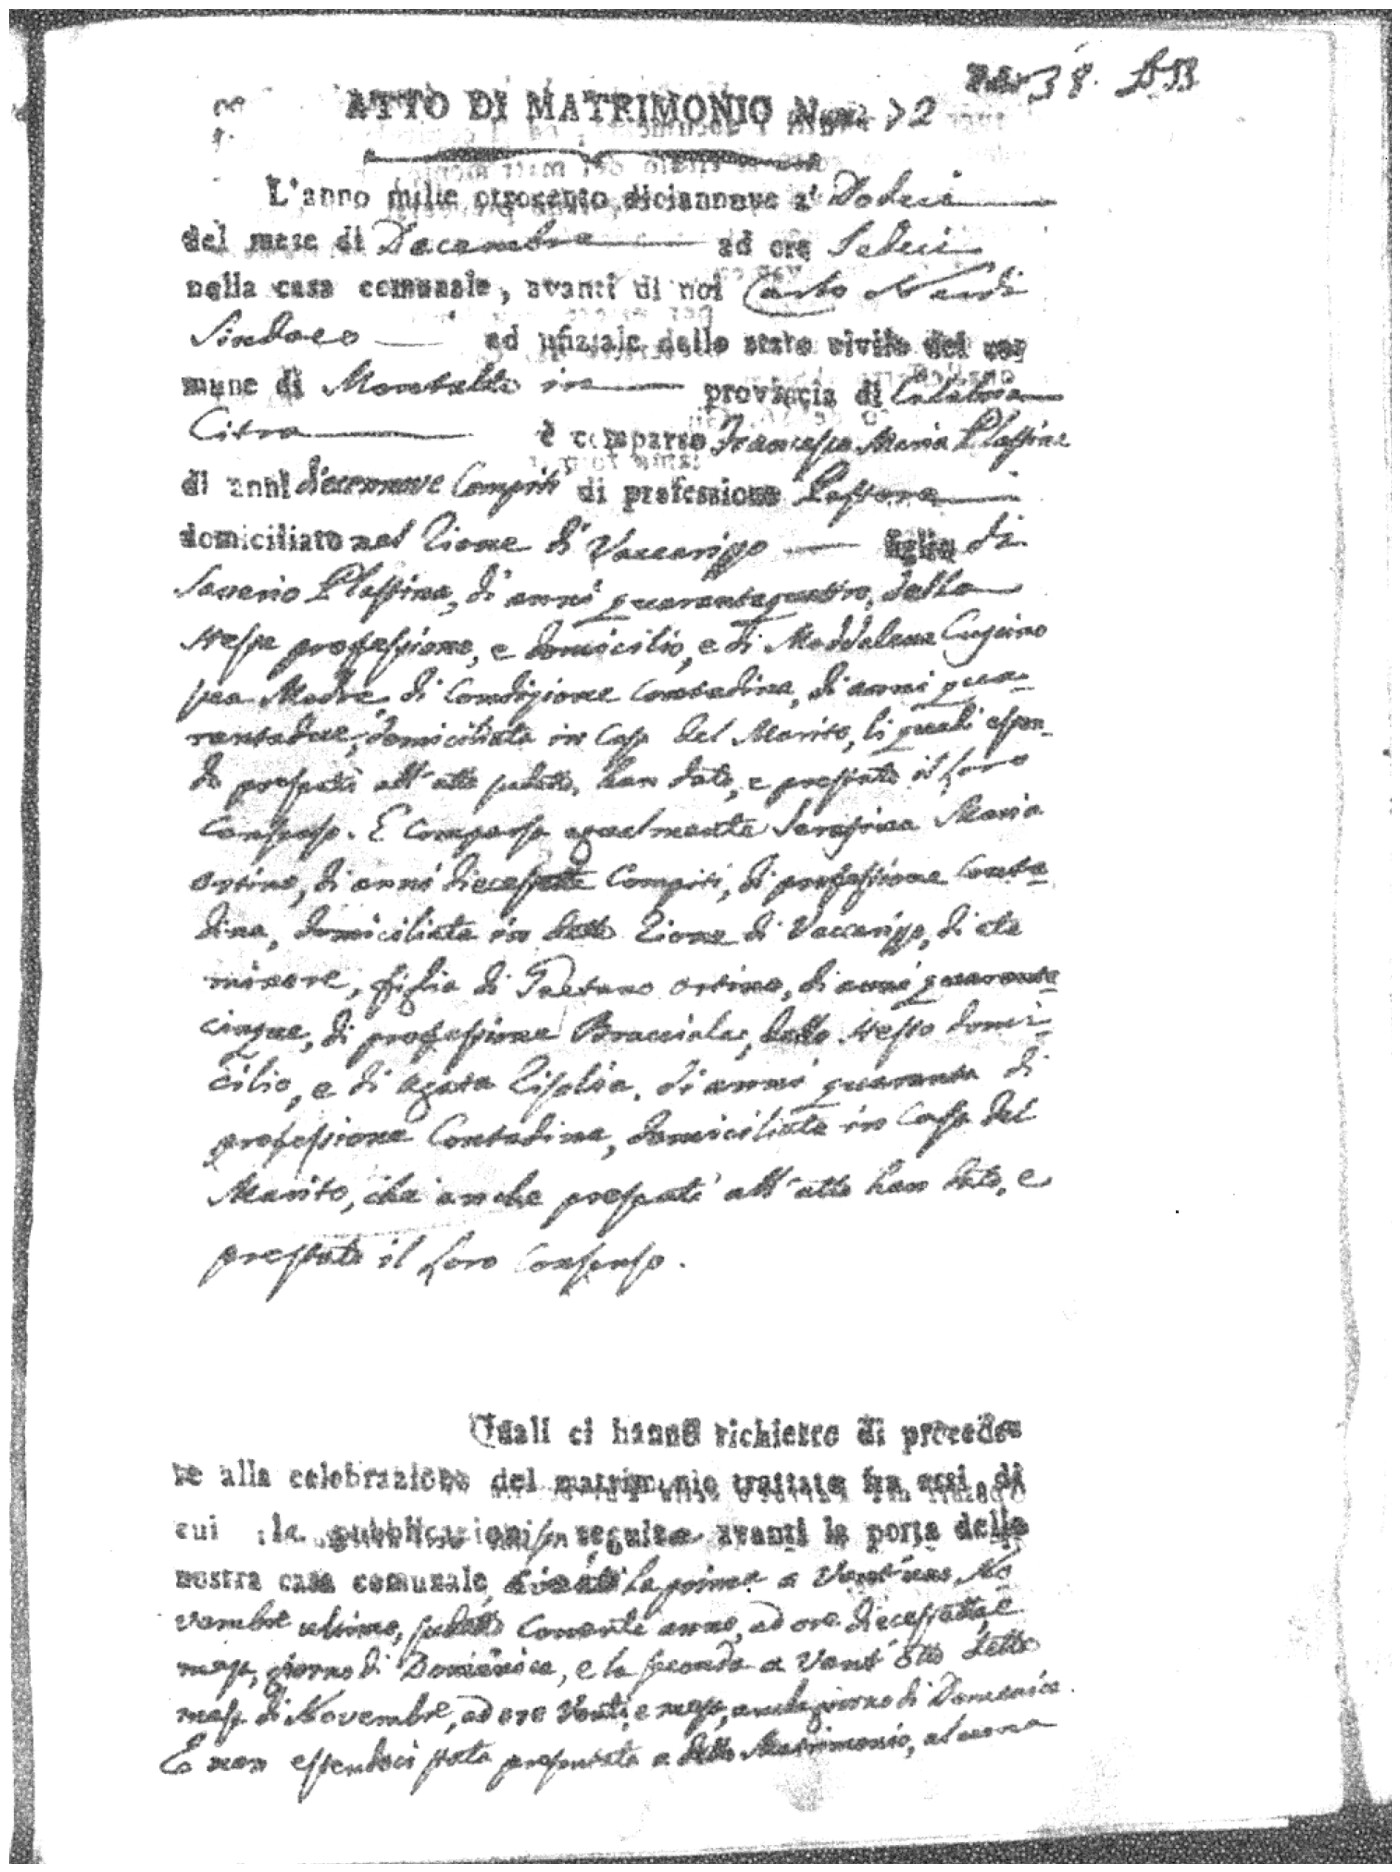 38.
ATTO DI MATRIMONIO Num. 72
L'anno mille ottocento diciannove a' Dodeci
del mese di Decembre ad ore Sedeci
nella casa comunale, avanti di noi Carlo Nardi
Sindaco ed ufiziale dello stato civile del co-
mune di Montalto in provincia di Calabria
Citra è comparso Francesco Maria Plastina
di anni diecennove Compiti di professione Pastore
domiciliato nel Rione di Vaccarizzo figlio di
Saverio Plastina, di anni quarantaquattro, della
stessa professione, e domicilio, e di Maddalena Cuscino
sua Madre di Condizione Contadina, di anni qua-
rantadue, domiciliata in Casa del Marito, li quali essen-
do presenti all'atto sudetto, han dato, e prestato il loro
Consenso. È Comparsa egualmente Serafina Maria
Ortino, di anni diecessette Compiti, di professione Conta-
dina, domiciliata in detto Rione di Vaccarizzo, di età
minore, figlia di Gaetano Ortino, di anni quaranta-
cinque, di professione Bracciale, dello stesso domi-
cilio, e di Agata Risolia, di anni quaranta di
professione Contadina, domiciliata in Casa del
Marito, che anche presenti all'atto han dato, e
prestato il loro Consenso.
Quali ci hanno richiesto di procede-
re alla celebrazione del matrimonio trattato fra essi di
cui le pubblicazioni son seguite avanti la porta della
nostra casa comunale, cioè la prima a Vent'uno No
vembre ultimo, sudetto Corrente anno, ad ore diecessette, e
mezza, giorno di Domenica, e la seconda a Vent'otto detto
mese di Novembre, ad ore Venti, e mezza, anche giorno di Domenica.
E non essendoci stata presentata a detto Matrimonio, alcuna